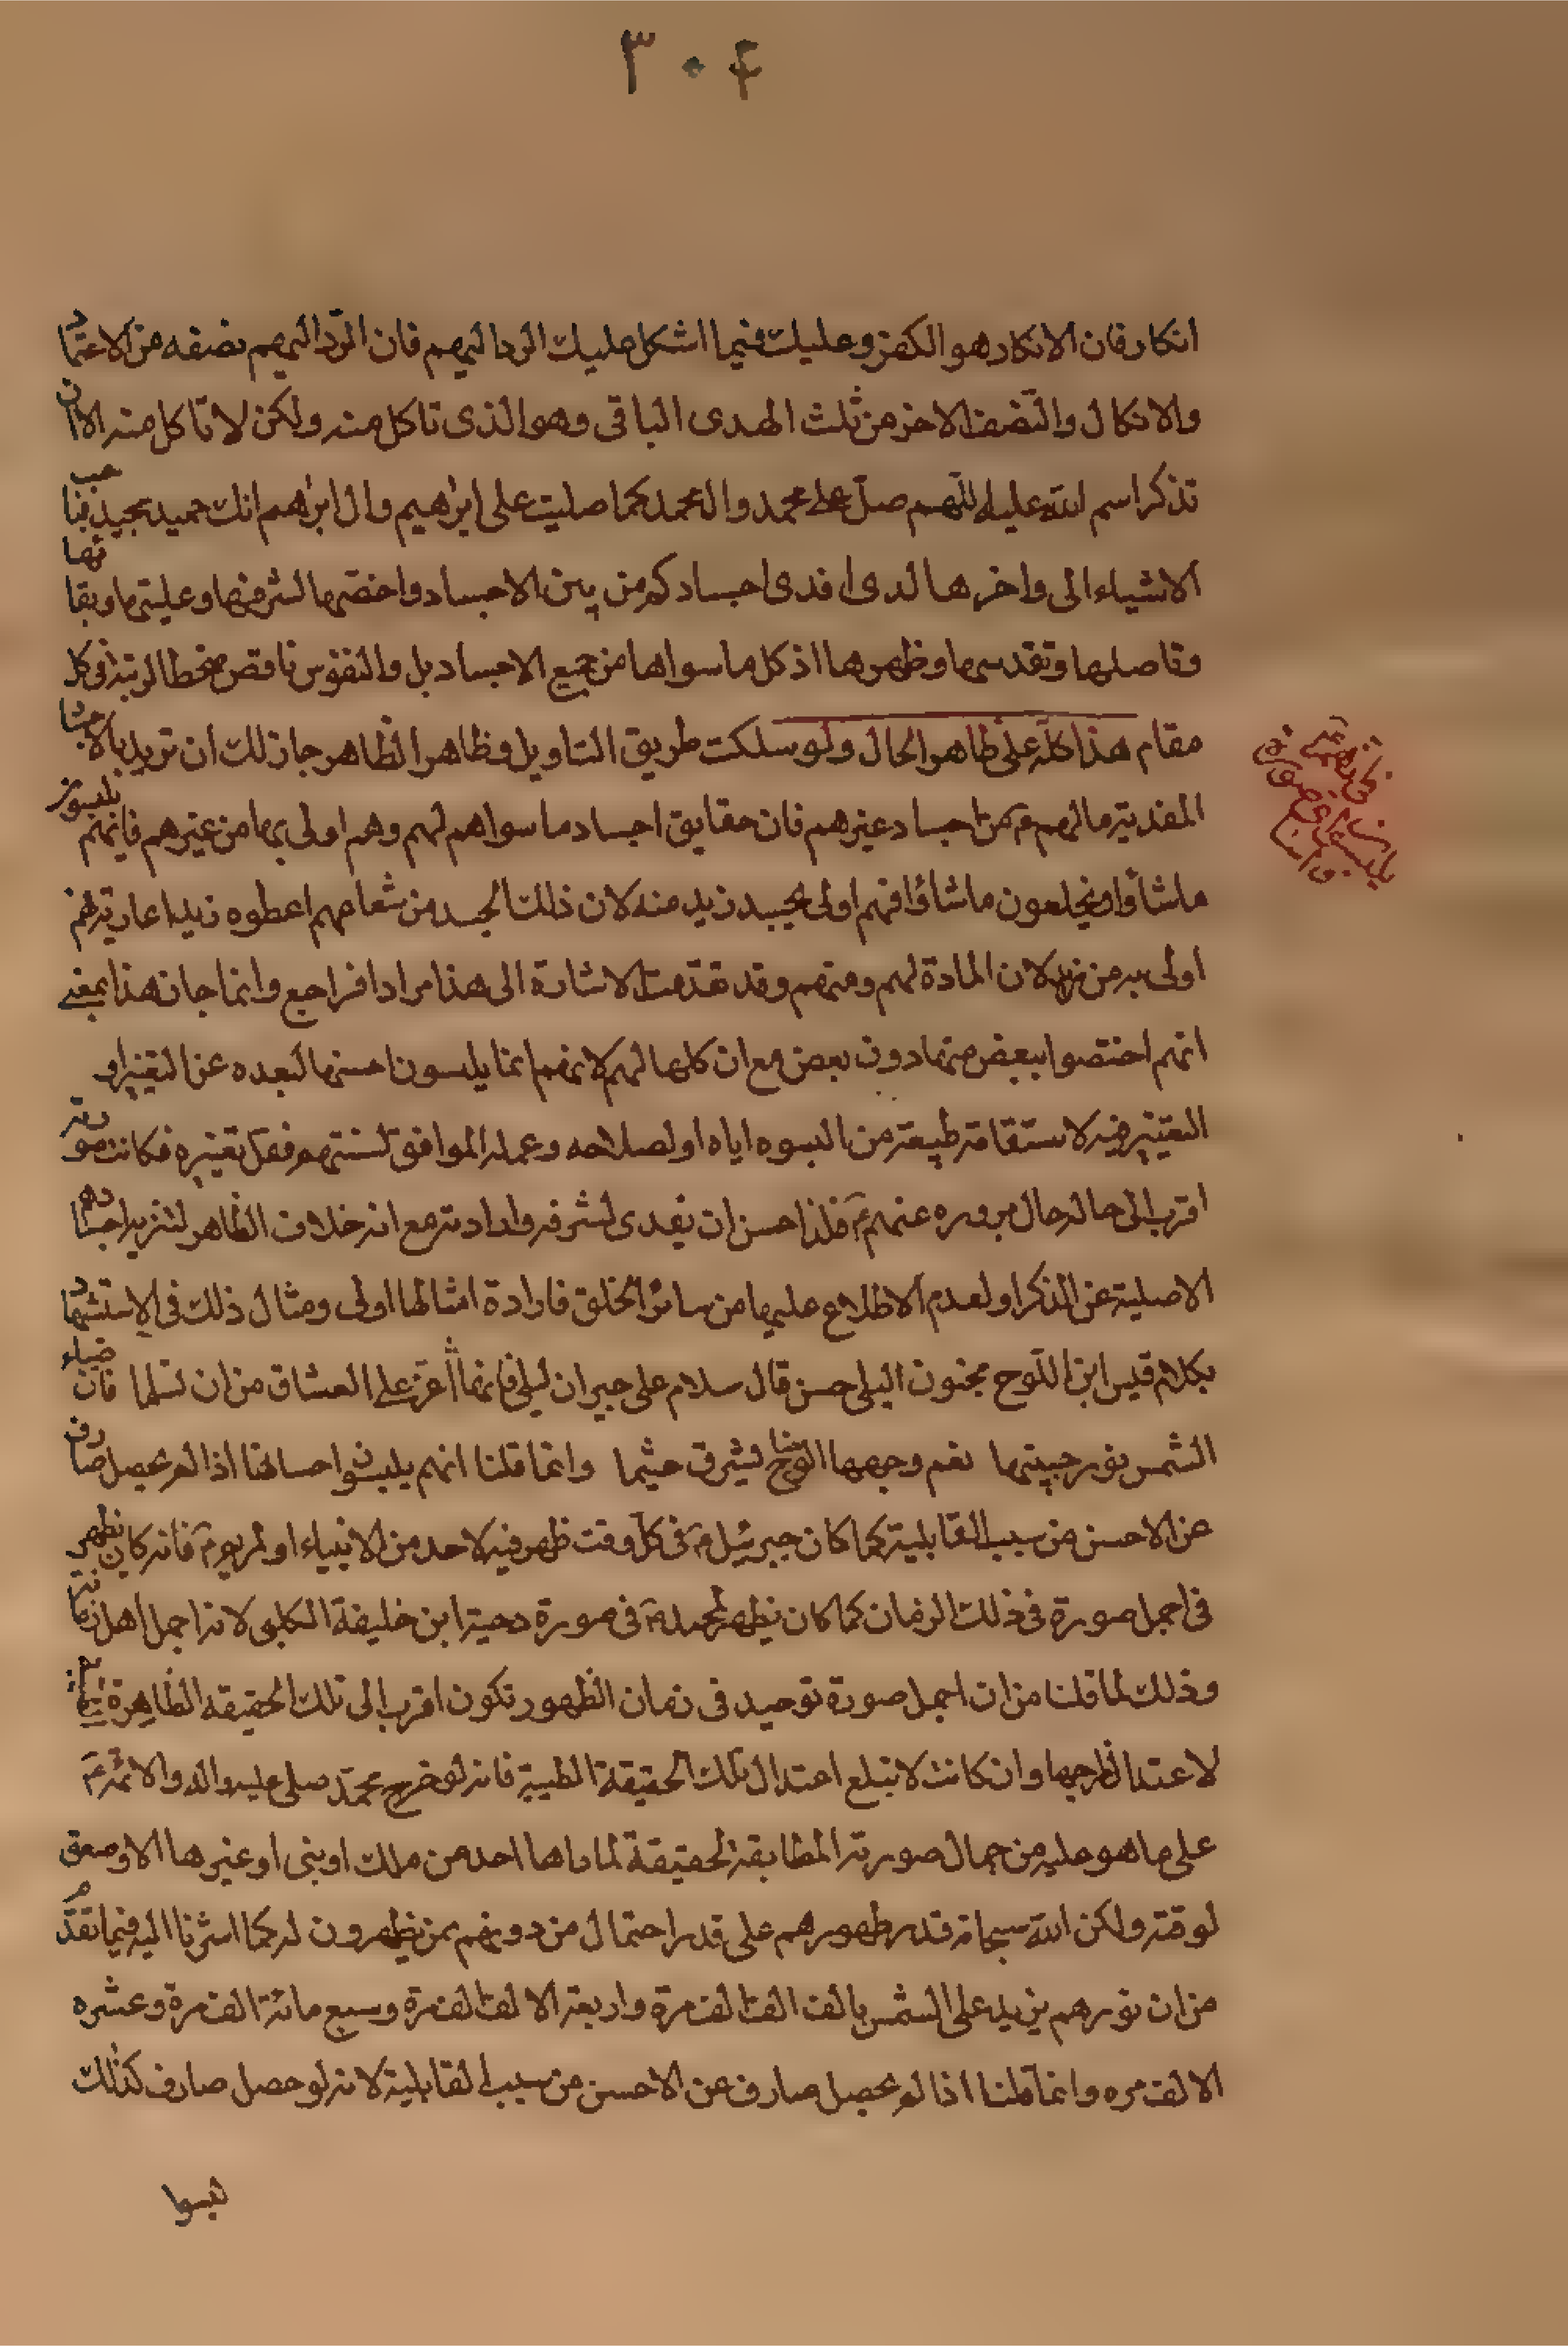 ٣٠٤
انكار فان الانكار هو الكفر وعليك فيما اشكل عليك الرد اليهم فان الرّد اليهم نصفه من الاعتماد
والاتكال والنّصف الاخر من ثلث الهدى الباقى وهو الذى تاكل منه ولكن لا تاكل منه الا ان
تذكر اسم اللّه عليه اللّهم صلّ على محمد وال محمد كما صليت على ابراهيم وال ابراهيم انك حميد مجيد
الاشياء الى واخرها لدى افدى اجسادكم من بين الاجساد واخصّها لشرفها وعليتها وبقائها
وتاصلها وتقدسها وظهرها اذ كل ما سواها من جميع الاجساد بل والنفوس ناقص منحط الرتبة فى كل
مقام هذا كلّه على ظاهر الحال ولو سلكت طريق التاويل وظاهر الظاهر جاز لك ان تريد بالاجساد
المفدية ما لهم من اجساد غيرهم فان حقايق اجساد ما سواهم لهم وهم اولى بها من غيرهم فانهم يلبسون
ما شاؤا ويخلعون ما شاؤا فهم اولى بجسد زيد منه لان ذلك الجسد من شعاعهم اعطوه زيدا عارية فهم
اولى به من زيد لان المادة لهم ومنهم وقد تقدمت الاشارة الى هذا مرارا فراجع وانما جاز هذا بمعنى
انهم اختصوا ببعض منها دون بعض مع ان كلها لهم لانهم انما يلبسون احسنها لبعده عن التغيير او
التغيير فيه لاستقامة طبيعة من البسوه اياه او لصلاحه وعمله الموافق لسنتهم فقل تغييره فكانت صورته
اقرب الى حاله حال بروره عنهم ع فلذا حسن ان يفدى لشرفه وارادته مع انه خلاف الظاهر لتنزيه اجسادهم
الاصلية عن الذكر او لعدم الاطلاع عليها من سائر الخلق فارادة امثالها اولى ومثال ذلك فى الاستشهاد
بكلام قيس ابن اللّوح مجنون اليلى حسن قال سلام على جيران ليلى فانما اعزّ على العشاق من ان تسلما فان ضياء
الشمس نور جبينها نعم وجهها الوضّاح يشرق حيثما وانما قلنا انهم يلبسوا احسانها اذا لم يحصل صارف
عن الاحسن من سبب القابلية كما كان جبرئيل ع فى كلّ وقت ظهر فيه لاحد من الانبياء او لمريم ع فانه كان يظهر
فى اجمل صورة فى ذلك الزمان كما كان يظهر لمحمد ص فى صورة دحية ابن خليفة الكلبى لانه اجمل اهل زمانه
وذلك لما قلنا من ان اجمل صورة توجد فى زمان الظهور تكون اقرب الى تلك الحقيقة الطاهرة
لاعتدال مزاجها وان كانت لا تبلغ اعتدال تلك الحقيقة الطيبة فانه لو خرج محمّد صلى عليه واله والائمة ع
على ما هو عليه من جمال صورته المطابقة لحقيقة لما راها احد من ملك او نبى او غيرها الا وصعق
لوقته ولكن اللّه سبحانه قدر ظهورهم على قدر احتمال من دونهم بمن يظهرون له كما اشرنا اليه فيما تقدّم
من ان نورهم يزيد على الشمس بالف الف الف مرة واربعة الالف الف مرة وسبع مائة الف مرة وعشره
الالف مره وانما قلنا اذا لم يحصل صارف عن الاحسن من سبب القابلية لانه لو حصل صارف كذلك
لبسوا